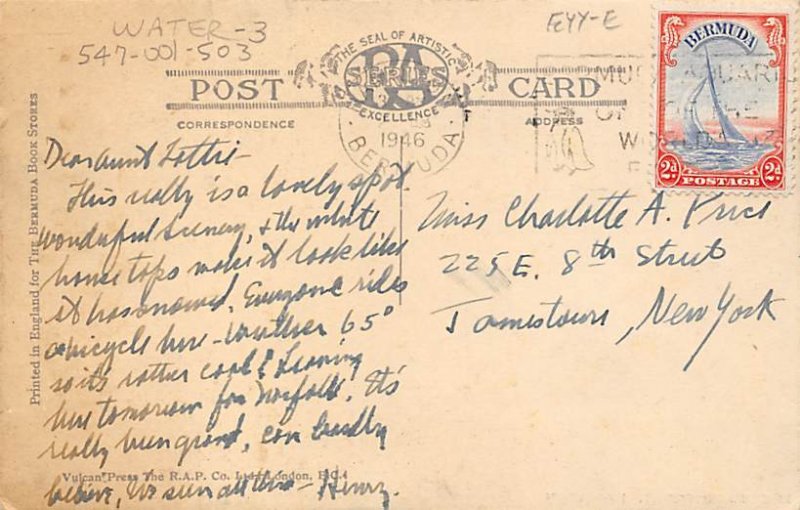 WATER-3
547-001-503
FEYY-E
THE SEAL OF ARTISTIC
RA
SERIES
EXCELLENCE
POST CARD
CORRESPONDENCE
ADDRESS
1946
BERMUDA
BERMUDA
2d 2d
POSTAGE
Printed in England for THE BERMUDA BOOK STORES
Dear Aunt Lottie-
This really is a lovely spot.
Wonderful scenery, & the white
house tops make it look like
it has snowed. Everyone rides
a bicycle here - weather 65°
so it's rather cool! Leaving
here tomorrow for Norfolk. It's
really been grand, can hardly
believe, I've seen all this - Henry.
Miss Charlotte A. Price
225 E. 8th Street
Jamestown, New York
Vulcan Press The R.A.P. Co. Ltd. London, E.C.4